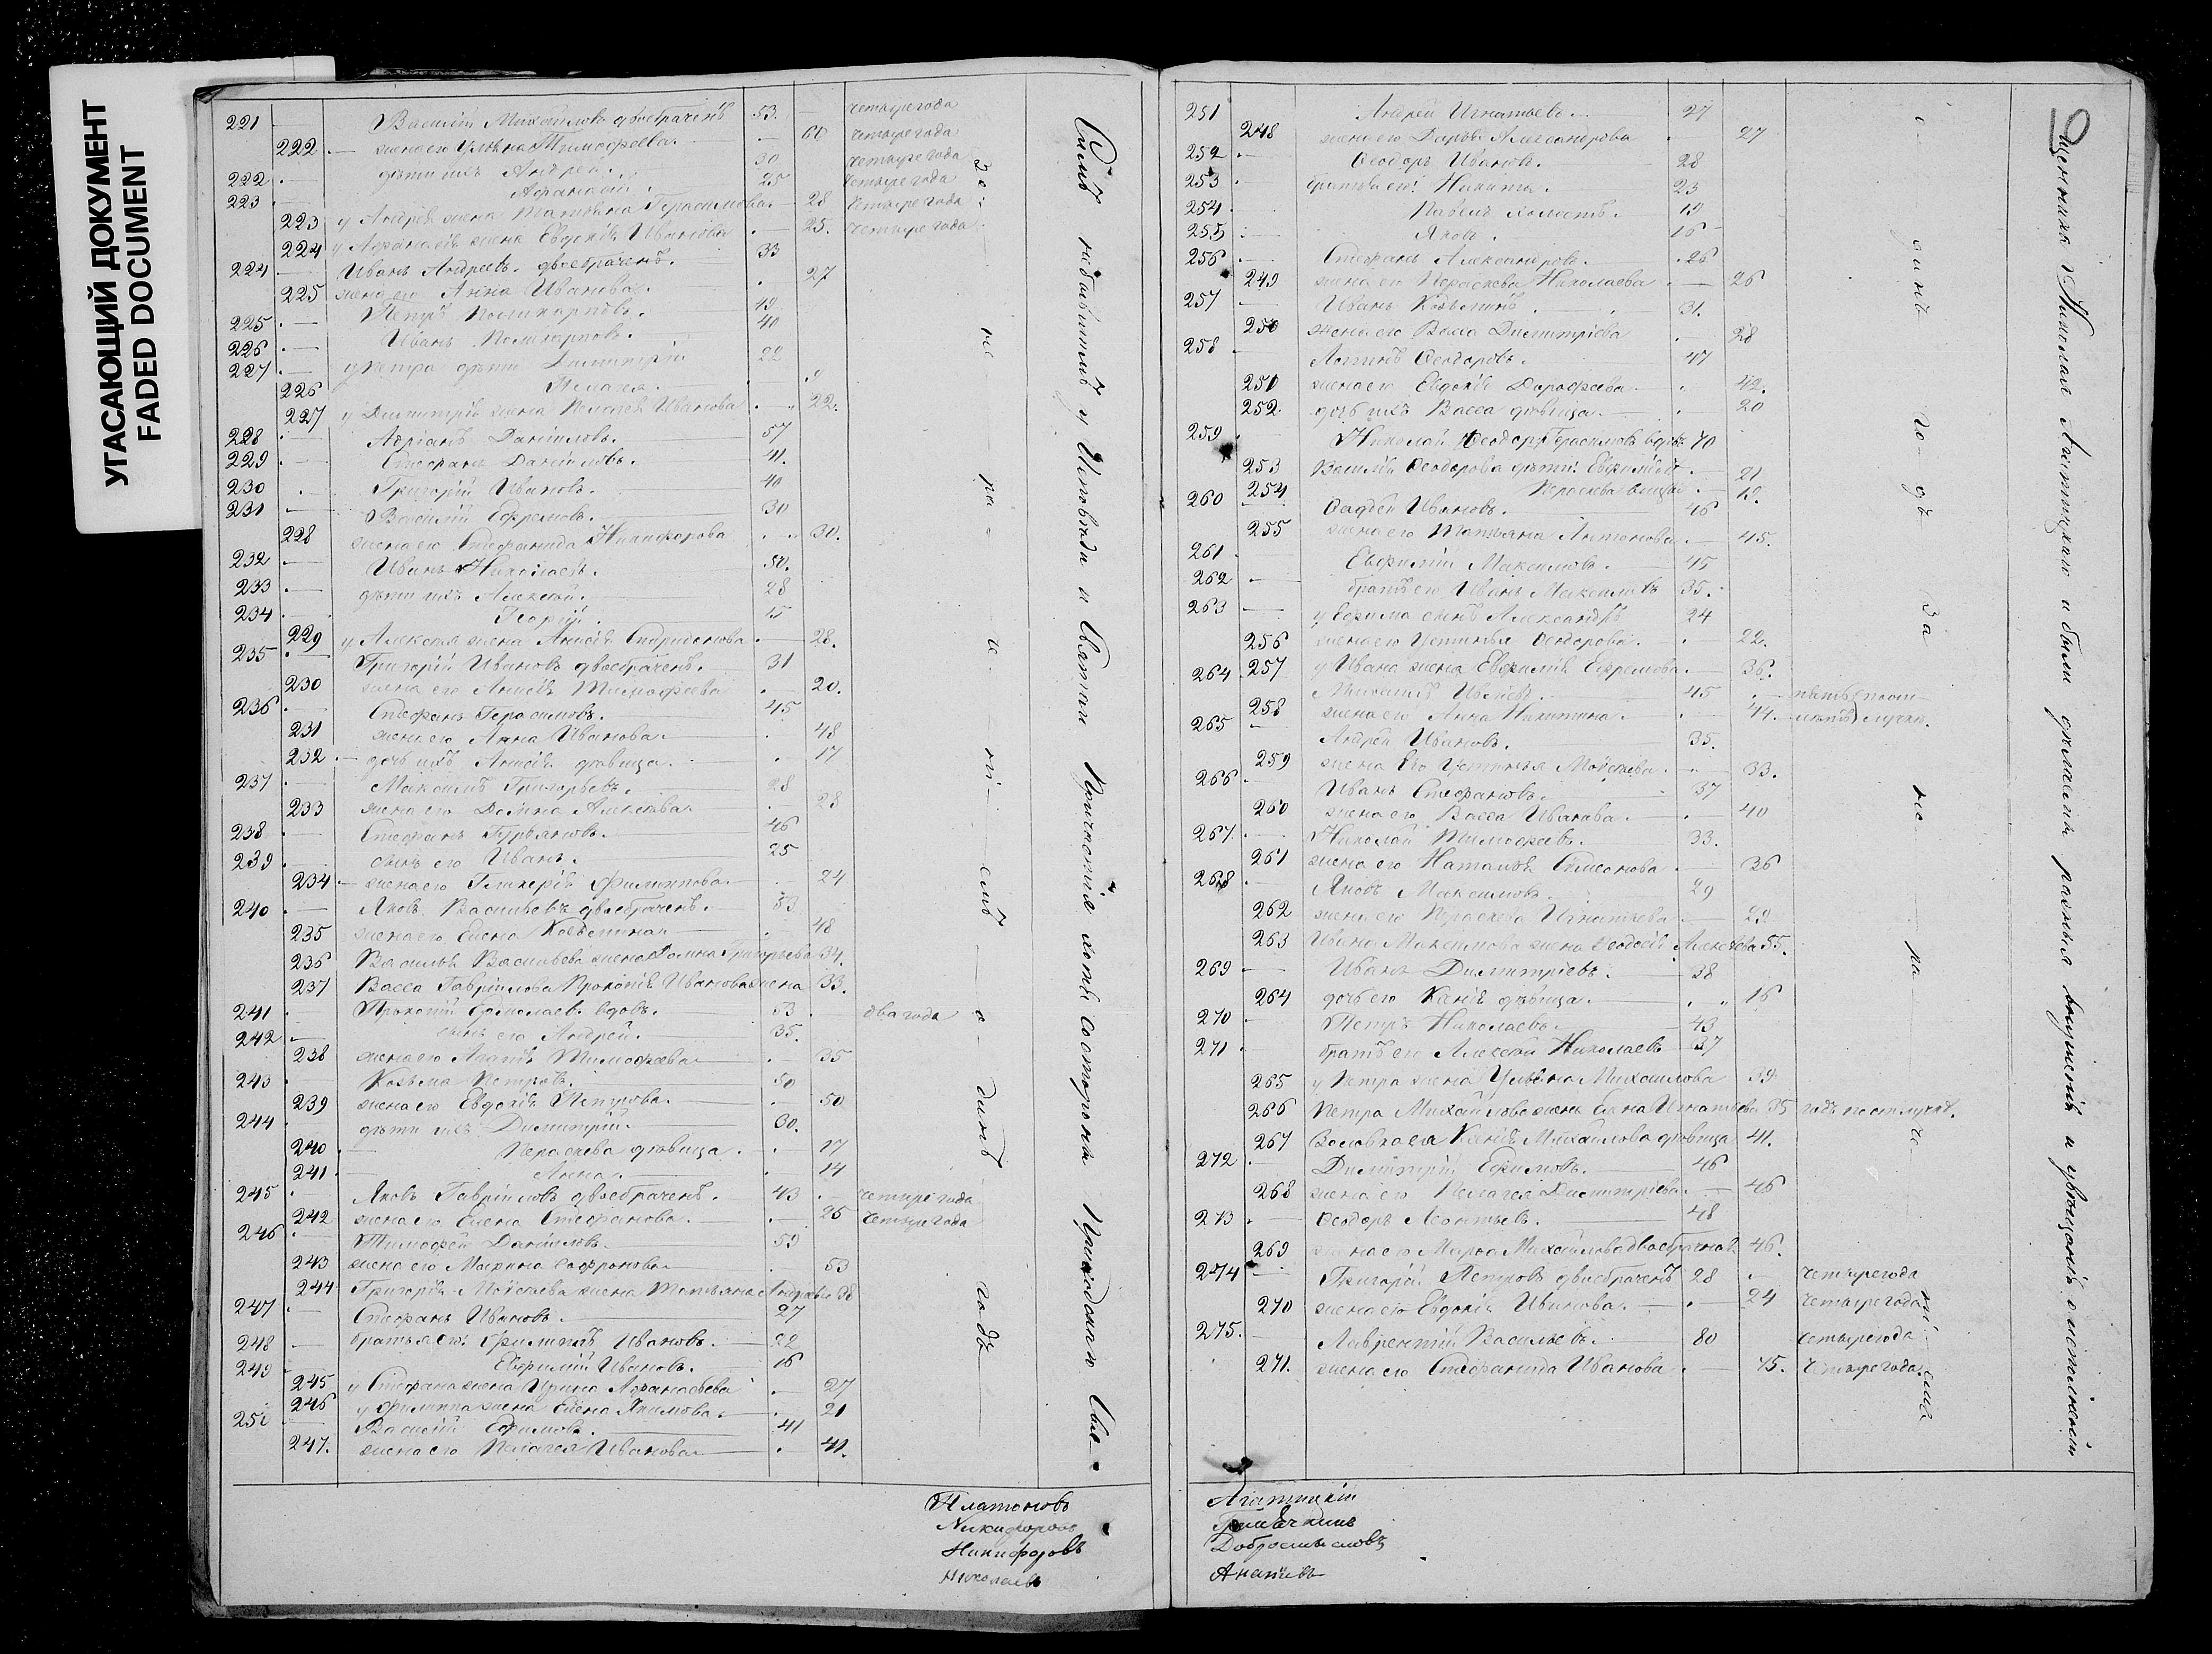 УГАСАЮЩИЙ ДОКУМЕНТ
FADED DOCUMENT
221 Василій Михайловъ двоебраченъ 53. четыре года
222 жена его Ульяна Тимофеева 60 четыре года
222 дѣти ихъ Андрей 30 четыре года
223 Афанасій 25 четыре года
223 у Андрея жена Татьяна Герасимова 28 четыре года
224 у Афанасія жена Евдокія Иванова 25. четыре года
224 Иванъ Андреевъ двоебраченъ 33
225 жена его Анна Иванова 27
225 Петръ Поликарповъ 42
226 Иванъ Поликарповъ 40
227 у Петра дѣти Димитрій 22
226 Пелагея
227 у Димитрія жена Пелагея Иванова 22.
228 Адріанъ Даніиловъ 57
229 Стефанъ Даніиловъ 41.
230 Григорій Ивановъ 40
231 Василій Ефремовъ 30
228 жена его Стефанида Никифорова 30.
232 Иванъ Николаевъ 50.
233 дѣти ихъ Алексій 28
234 Георгій 15
229 у Алексея жена Анисія Спиридонова 28.
235 Григорій Ивановъ двоебраченъ 31
230 жена его Анисія Тимофеева 20.
236 Стефанъ Герасимовъ 45
231 жена его Анна Иванова 48
232 дочь ихъ Анисія дѣвица 17
237 Максимъ Григорьевъ 28
233 жена его Домна Алексѣева 28
238 Стефанъ Гурьяновъ 46
239 сынъ его Иванъ 25
234 жена его Гликерія Филиппова 24
240 Яковъ Васильевъ двоебраченъ 53
235 жена его Елена Козьмина 48
236 Василья Васильева жена Домна Григорьева 34.
237 Васса Гавріилова Прокопія Иванова жена 33.
241 Прокопій Ермолаевъ вдовъ 53 два года
242 сынъ его Андрей 35.
238 жена его Агапія Тимофеева 35
243 Козьма Петровъ 50
239 жена его Евдокія Петрова 50
244 дѣти ихъ Димитрій 30.
240 Параскева дѣвица 17
241 Анна 14
245 Яковъ Гавріиловъ двоебраченъ 43 четыре года
242 жена его Елена Стефанова 25 четыре года
246 Тимофей Даніиловъ 59
243 жена его Марина Софронова 53
244 Григорія Моисеева жена Татьяна Андреева 38
247 Стефанъ Ивановъ 27
248 братья его: Филиппъ Ивановъ 22
249 Евфимій Ивановъ 16
245 у Стефана жена Ирина Афанасьева 27
246 у Филиппа жена Елена Якимова 21
250 Василій Ефимовъ 41
247. жена его Пелагея Иванова 41.
не ра че ні емъ о динъ годъ
Симъ небывшимъ у Исповѣди и Святаго Причастія хотя со стороны Приходскаго Свя-
Платоновъ
Никифоровъ
Никифоровъ
Николаевъ
9
251 Андрей Игнатьевъ 27
248 жена его Дарья Александрова 27
252 Ѳеодоръ Ивановъ 28
253 братья его: Никита 23
254 Павелъ холостъ 19
255 Яковъ 16
256 Стефанъ Александровъ 26
249 жена его Параскева Николаева 26
257 Иванъ Козьминъ 31.
250 жена его Васса Димитріева 28
258 Логинъ Ѳеодоровъ 47
251 жена его Евдокія Дорофеева 42.
252. дочь ихъ Васса дѣвица 20
259 Николай Ѳеодоръ Герасимовъ вдовъ 70
253 Василія Ѳеодорова дѣти: Евфимія 21
254 Параскева дѣвица 19.
260 Ѳаддей Ивановъ 46
255 жена его Татьяна Антонова 45.
261 Евфимій Максимовъ 45
262 братъ его Иванъ Максимовъ 35.
263 у Ефима сынъ Александръ 24
256 жена его Устинья Ѳеодорова 22.
257 у Ивана жена Евфимія Ефремова 36.
264 Михаилъ Иваевъ 45 пять лѣтъ
258 жена его Анна Никитина 44.
265 Андрей Ивановъ 35.
259 жена его Устинья Моисеева 33.
266 Иванъ Стефановъ 37
260 жена его Васса Иванова 40
267. Николай Тимофеевъ 33.
261 жена его Наталья Симеонова 36
268 Яковъ Максимовъ 29
262 жена его Параскева Игнатьева 29
263 Ивана Максимова жена Ѳеодосія Алексѣева 55.
269 Иванъ Димитріевъ 38
264 дочь его Ксенія дѣвица 16
270 Петръ Николаевъ 43
271 братъ его Алексей Николаевъ 37
265 у Петра жена Ульяна Михаилова 39
266 Петра Михайлова жена Елена Игнатьева 35
267 Ксенія Михайлова дѣвица 41.
272 Димитрій Ефимовъ 46
268 жена его Пелагея Димитріева 46
273 Ѳеодоръ Леонтьевъ 48
269 жена его Марѳа Михайлова двоебрачная 46.
274 Григорій Петровъ двоебраченъ 28 четыре года
270 жена его Евдокія Иванова 24 четыре года
275. Лаврентій Васильевъ 80 четыре года
271. жена его Стефанида Иванова 75. четыре года
одинъ го-дъ за не ра че ні емъ
щенника Николая Агатицкаго и были дѣлаемы разныя внушенія и увѣщанія
Агатицкій
Добросмысловъ
Ананьевъ